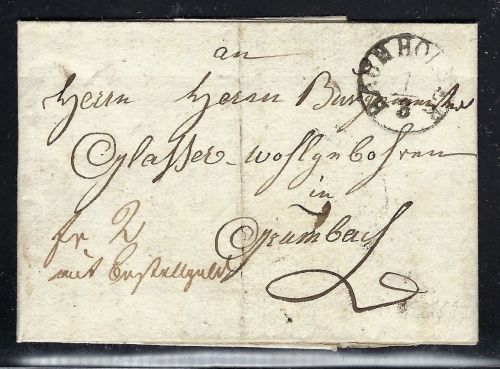 an
Herrn Herrn Burgermeister
Glasser wohlgebohren
in
Grumbach
fr 2
mit bestellgeld
1
8